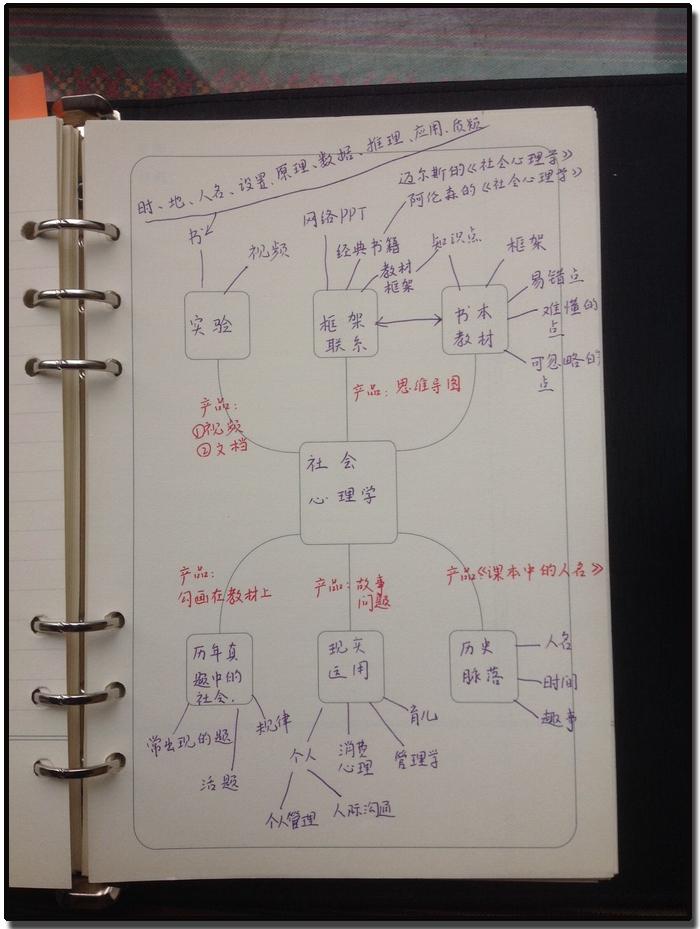 时、地、人名、设置、原理、数据、推理、应用、质疑
迈尔斯的《社会心理学》
阿伦森的《社会心理学》
网络PPT
书
视频
经典书籍
知识点
框架
教材
框架
易错点
难懂的
点
可忽略的
点
实验
框架
联系
书本
教材
产品:
①视频
②文档
产品: 思维导图
社会
心理学
产品:
勾画在教材上
产品: 故事
问题
产品《课本中的人名》
历年真
题中的
社会.
现实
运用
历史
脉落
人名
时间
趣事
常出现的题
话题
规律
个人
消费
心理
管理学
育儿
个人管理
人际沟通